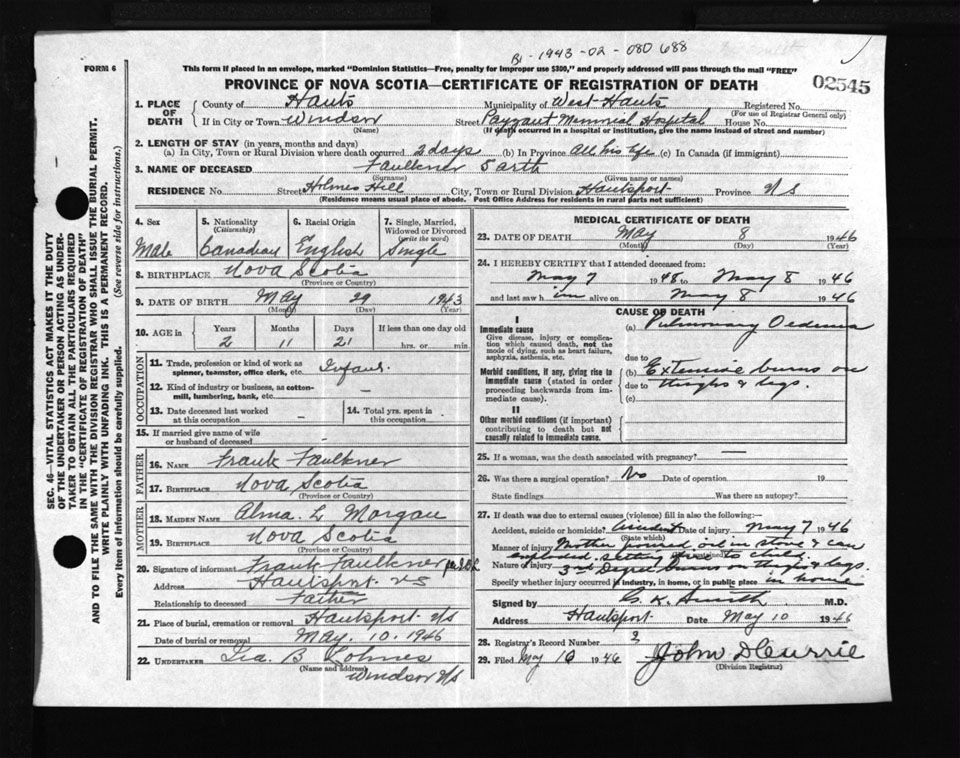 B- 1943-02-080688
FORM 6
This form if placed in an envelope, marked "Dominion Statistics—Free, penalty for improper use $300," and properly addressed will pass through the mail "FREE"
PROVINCE OF NOVA SCOTIA—CERTIFICATE OF REGISTRATION OF DEATH
02545
1. PLACE OF DEATH County of Hants Municipality of West Hants Registered No.
(For use of Registrar General only)
If in City or Town Windsor Street Payzant Memorial Hospital House No.
(Name) (If death occurred in a hospital or institution, give the name instead of street and number)
2. LENGTH OF STAY (in years, months and days)
(a) In City, Town or Rural Division where death occurred 2 days (b) In Province All his life (c) In Canada (if immigrant)
3. NAME OF DECEASED Faulkner Garth
(Surname) (Given name or names)
RESIDENCE No. Street Holmes Hill City, Town or Rural Division Hantsport Province NS
(Residence means usual place of abode. Post Office Address for residents in rural parts not sufficient)
SEC. 46—VITAL STATISTICS ACT MAKES IT THE DUTY
OF THE UNDERTAKER OR PERSON ACTING AS UNDER-
TAKER TO OBTAIN ALL THE PARTICULARS REQUIRED
IN THE "CERTIFICATE OF REGISTRATION OF DEATH"
AND TO FILE THE SAME WITH THE DIVISION REGISTRAR WHO SHALL ISSUE THE BURIAL PERMIT.
WRITE PLAINLY WITH UNFADING INK. THIS IS A PERMANENT RECORD.
Every item of Information should be carefully supplied. (See reverse side for instructions.)
4. Sex 5. Nationality (Citizenship) 6. Racial Origin 7. Single, Married, Widowed or Divorced (write the word)
Male Canadian English Single
8. BIRTHPLACE Nova Scotia
(Province or Country)
9. DATE OF BIRTH May 29 1943
(Month) (Day) (Year)
10. AGE in Years Months Days If less than one day old
2 11 21 hrs. or min.
OCCUPATION
11. Trade, profession or kind of work as spinner, teamster, office clerk, etc. Infant.
12. Kind of industry or business, as cotton-mill, lumbering, bank, etc.
13. Date deceased last worked at this occupation — 14. Total yrs. spent in this occupation
15. If married give name of wife or husband of deceased
FATHER
16. NAME Frank Faulkner
17. BIRTHPLACE Nova Scotia
(Province or Country)
MOTHER
18. MAIDEN NAME Alma. L Morgan
19. BIRTHPLACE Nova Scotia
(Province or Country)
20. Signature of informant Frank Faulkner
Address Hantsport NS
Relationship to deceased Father
21. Place of burial, cremation or removal Hantsport N/S
Date of burial or removal May. 10. 1946
22. UNDERTAKER Ira. B Lohnes
(Name and address)
Windsor N/S
MEDICAL CERTIFICATE OF DEATH
23. DATE OF DEATH May 8 1946
(Month) (Day) (Year)
24. I HEREBY CERTIFY that I attended deceased from:
May 7 1948 to May 8 1946
and last saw him alive on May 8 1946
CAUSE OF DEATH
I
Immediate cause (a) Pulmonary Oedema
Give disease, injury or complication which caused death, not the mode of dying, such as heart failure, asphyxia, asthenia, etc.
due to
Morbid conditions, if any, giving rise to immediate cause (stated in order proceeding backwards from immediate cause). (b) Extensive burns on
due to thighs & legs.
(c)
II
Other morbid conditions (if important) contributing to death but not causally related to immediate cause.
25. If a woman, was the death associated with pregnancy? —
26. Was there a surgical operation? No Date of operation 19
State findings Was there an autopsy?
27. If death was due to external causes (violence) fill in also the following:
Accident, suicide or homicide? Accident Date of injury May 7 1946
(State which)
Manner of injury Mother poured oil in stove & can
exploded. setting fire to child.
Nature of injury 3rd Degree burns on thighs & legs.
Specify whether injury occurred in industry, in home, or in public place in home
Signed by C. K. Smith M.D.
Address Hantsport Date May 10 1946
28. Registrar's Record Number
29. Filed May 16 1946 John D Currie
(Division Registrar)